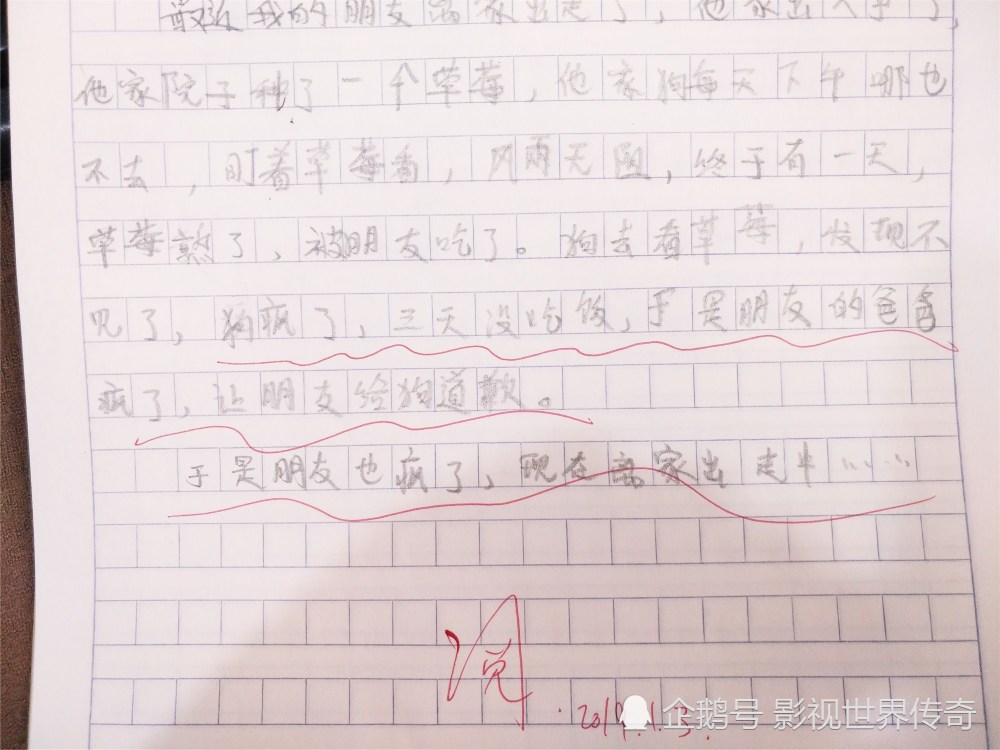 最近我的朋友离家出走了，他家出大事了，
他家院子种了一个草莓，他家狗每天下午哪也
不去，盯着草莓看，风雨无阻，终于有一天，
草莓熟了，被朋友吃了。狗去看草莓，发现不
见了，狗疯了，三天没吃饭，于是朋友的爸爸
疯了，让朋友给狗道歉。
于是朋友也疯了，现在离家出走中……
阅
2019.1.3.
企鹅号 影视世界传奇